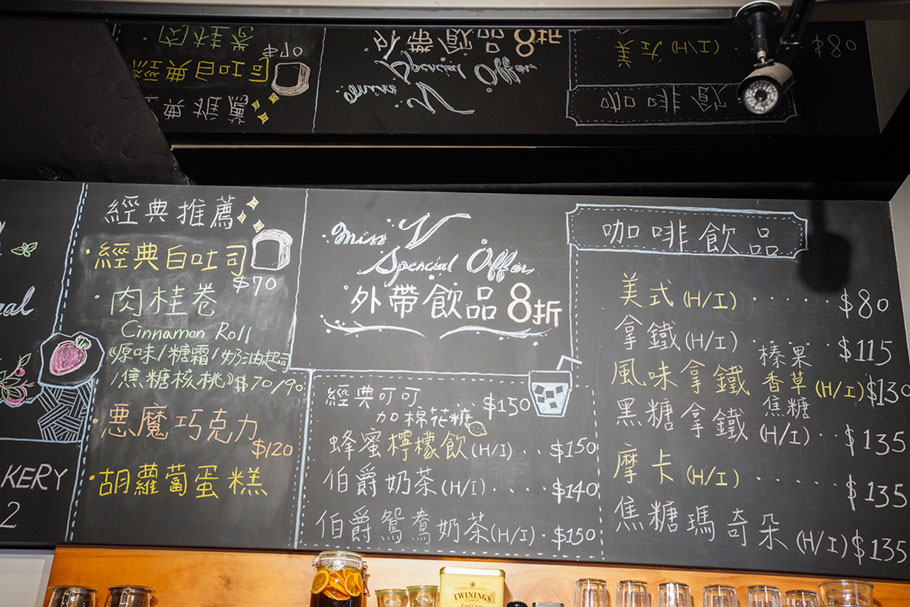 經典推薦
·經典白吐司
$70
·肉桂卷
Cinnamon Roll
(原味/糖霜/奶油起司
/焦糖核桃)$70/90
·惡魔巧克力
$120
·胡蘿蔔蛋糕
KERY
2
Miss V
Spencial Offer
外帶飲品8折
經典可可 ... $150
加棉花糖
蜂蜜檸檬飲(H/I) .... $150
伯爵奶茶(H/I) .... $140
伯爵鴛鴦奶茶(H/I) · $150
咖啡飲品
美式(H/I) ...... $80
拿鐵(H/I) $115
風味拿鐵 榛果 香草 焦糖 (H/I) $130
黑糖拿鐵(H/I) .. $135
摩卡(H/I) $135
焦糖瑪奇朵(H/I) $135
TWININGS
肉桂卷
$70
經典白吐司
典推薦
外帶飲品8折
Spencial Offer
Miss V
美式(H/I) $80
咖啡飲